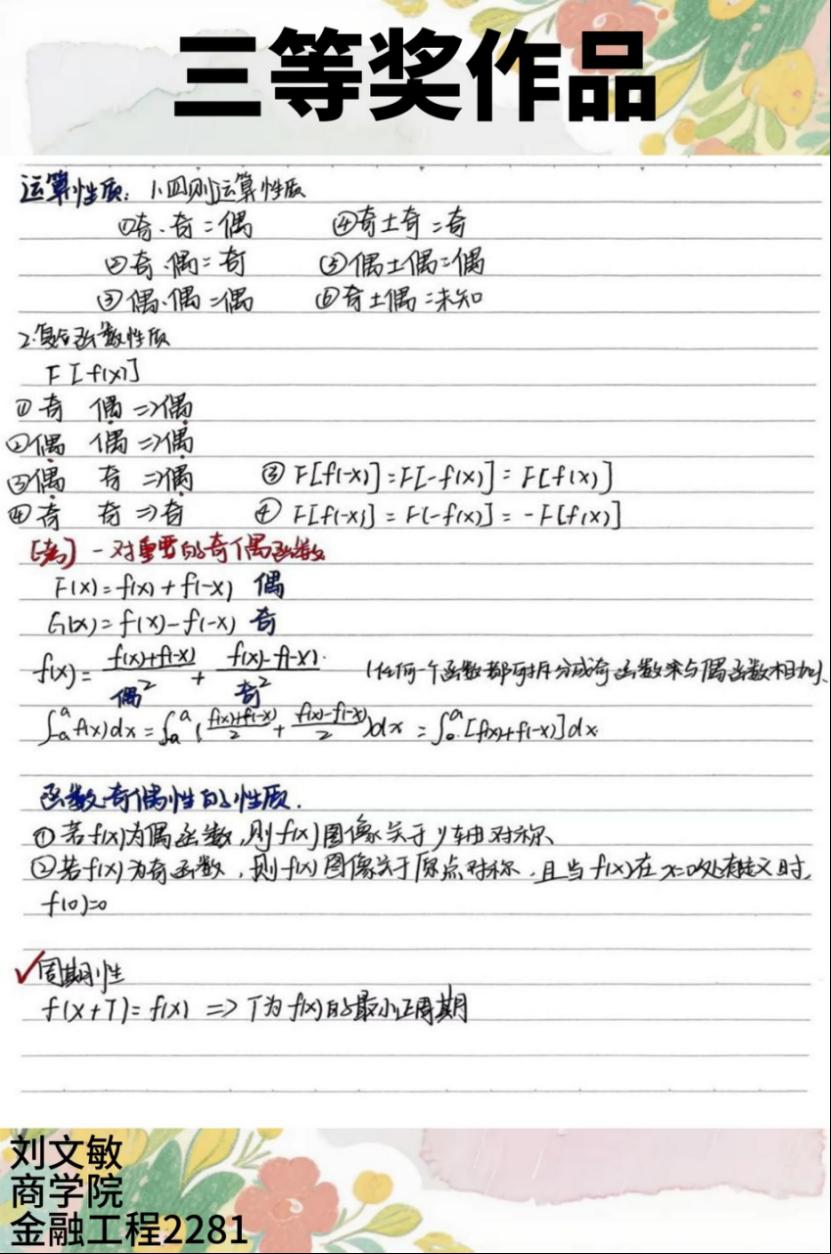 三等奖作品
运算性质: 1.四则运算性质
①奇·奇=偶 ④奇±奇=奇
②奇·偶=奇 ⑤偶±偶=偶
③偶·偶=偶 ⑥奇±偶=未知
2.复合函数性质
F[f(x)]
①奇 偶 =>偶
②偶 偶 =>偶
③偶 奇 =>偶 ③ F[f(-x)]=F[-f(x)]=F[f(x)]
④奇 奇 =>奇 ④ F[f(-x)]=F[-f(x)]=-F[f(x)]
[考] 一对重要的奇偶函数
F(x)=f(x)+f(-x) 偶
G(x)=f(x)-f(-x) 奇
f(x)= (f(x)+f(-x))/2 + (f(x)-f(-x))/2. (任何一个函数都可拆分成奇函数来与偶函数相加).
偶 奇
∫_{-a}^{a} f(x)dx=∫_{-a}^{a} ((f(x)+f(-x))/2 + (f(x)-f(-x))/2)dx =∫_0^a [f(x)+f(-x)]dx.
函数奇偶性的性质.
①若f(x)为偶函数,则f(x)图像关于y轴对称
②若f(x)为奇函数,则f(x)图像关于原点对称.且当f(x)在x=0处有定义时,
f(0)=0
✓周期性
f(x+T)=f(x) => T为f(x)的最小正周期
刘文敏
商学院
金融工程2281